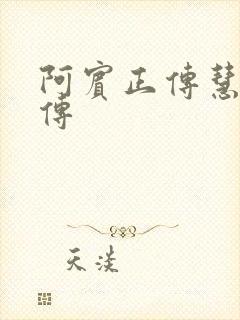 阿賓正傳慧
傳
天淡